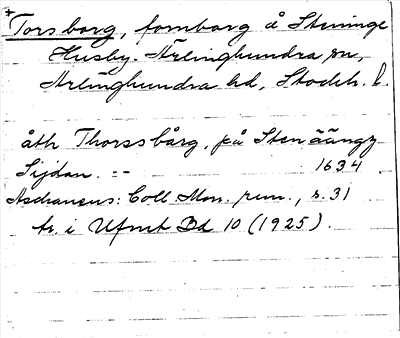 * Torsborg, fornborg å Steninge
Husby-Ärlinghundra sn,
Ärlinghundra hd, Stockh. l.
åth Thorssbårg, på Stenäängz
Sijdan. :- 1634
Aschaneus: Coll Mon. run., s. 31
tr. i Ufmt Bd 10 (1925).